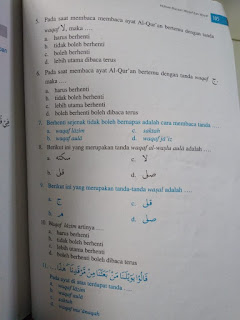 181
5. Pada saat membaca membaca ayat Al-Qur'an bertemu dengan tanda
waqaf لا, maka ....
a. harus berhenti
b. tidak boleh berhenti
c. boleh berhenti
d. lebih utama dibaca terus
6. Pada saat membaca ayat Al-Qur'an bertemu dengan tanda waqaf ج,
maka ....
a. harus berhenti
b. tidak boleh berhenti
c. lebih utama berhenti
d. boleh berhenti boleh dibaca terus
7. Berhenti sejenak tidak boleh bernapas adalah cara membaca tanda ....
a. waqaf lāzim
c. saktah
b. waqaf aulā
d. waqaf jā'iz
8. Berikut ini yang merupakan tanda waqaf al-waṣlu aulā adalah ....
a. سكته
c. لا
b. قلى
d. صلى
9. Berikut ini yang merupakan tanda-tanda waqaf adalah ....
a. ج
c. ق
b. م
d. صلى
10. Waqaf lāzim artinya ....
a. harus berhenti
b. tidak boleh berhenti
c. lebih utama berhenti
d. boleh berhenti boleh dibaca terus
قَالُوْا يٰوَيْلَنَا مَنْۢ بَعَثَنَا مِنْ مَّرْقَدِنَا هٰذَا
Pada ayat di atas terdapat tanda ....
a. waqaf lāzim
b. waqaf aulā
c. saktah
d. waqaf